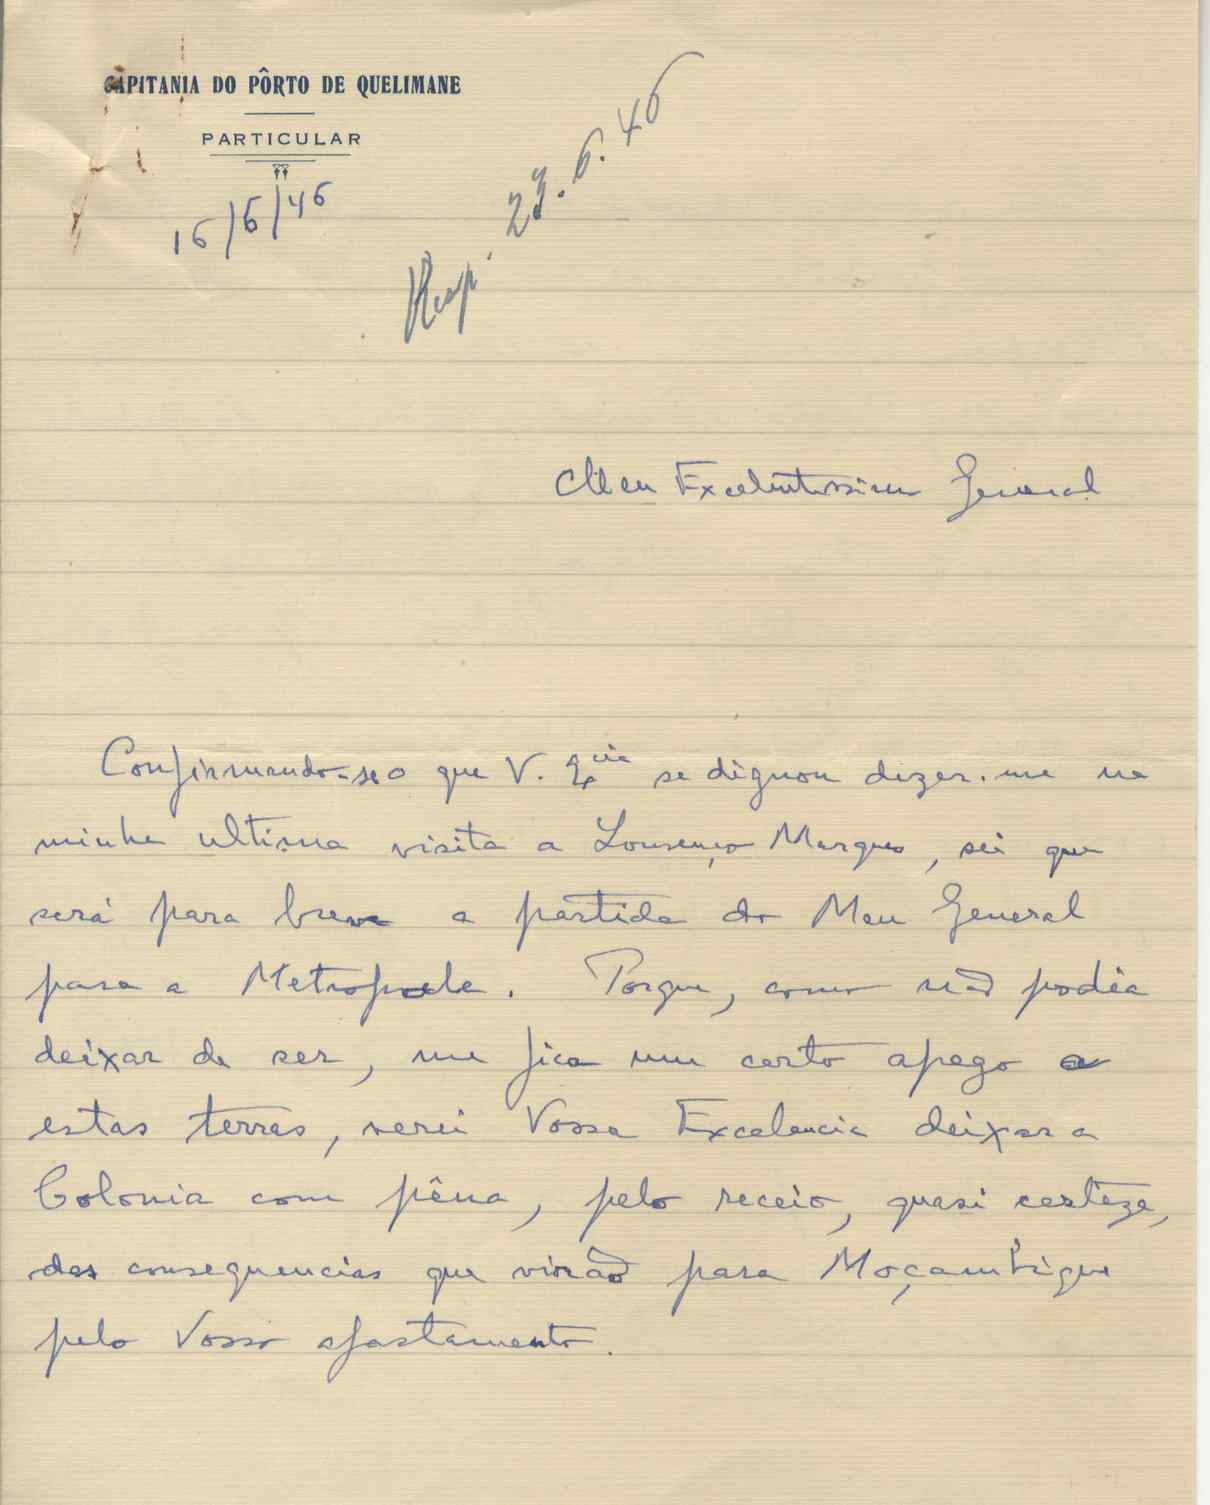 CAPITANIA DO PÔRTO DE QUELIMANE
PARTICULAR
16/6/46
Resp. 23.6.46
Meu Excelentissimo General
Confirmando-se o que V. Ex.cia se dignou dizer-me na
minha ultima visita a Lourenço Marques, sei que
será para breve a partida do Meu General
para a Metropole. Porque, como não podia
deixar de ser, me fica um certo apego a
estas terras, verei Vossa Excelencia deixar a
Colonia com pêna, pelo receio, quasi certeza,
das consequencias que virão para Moçambique
pelo Vosso afastamento.